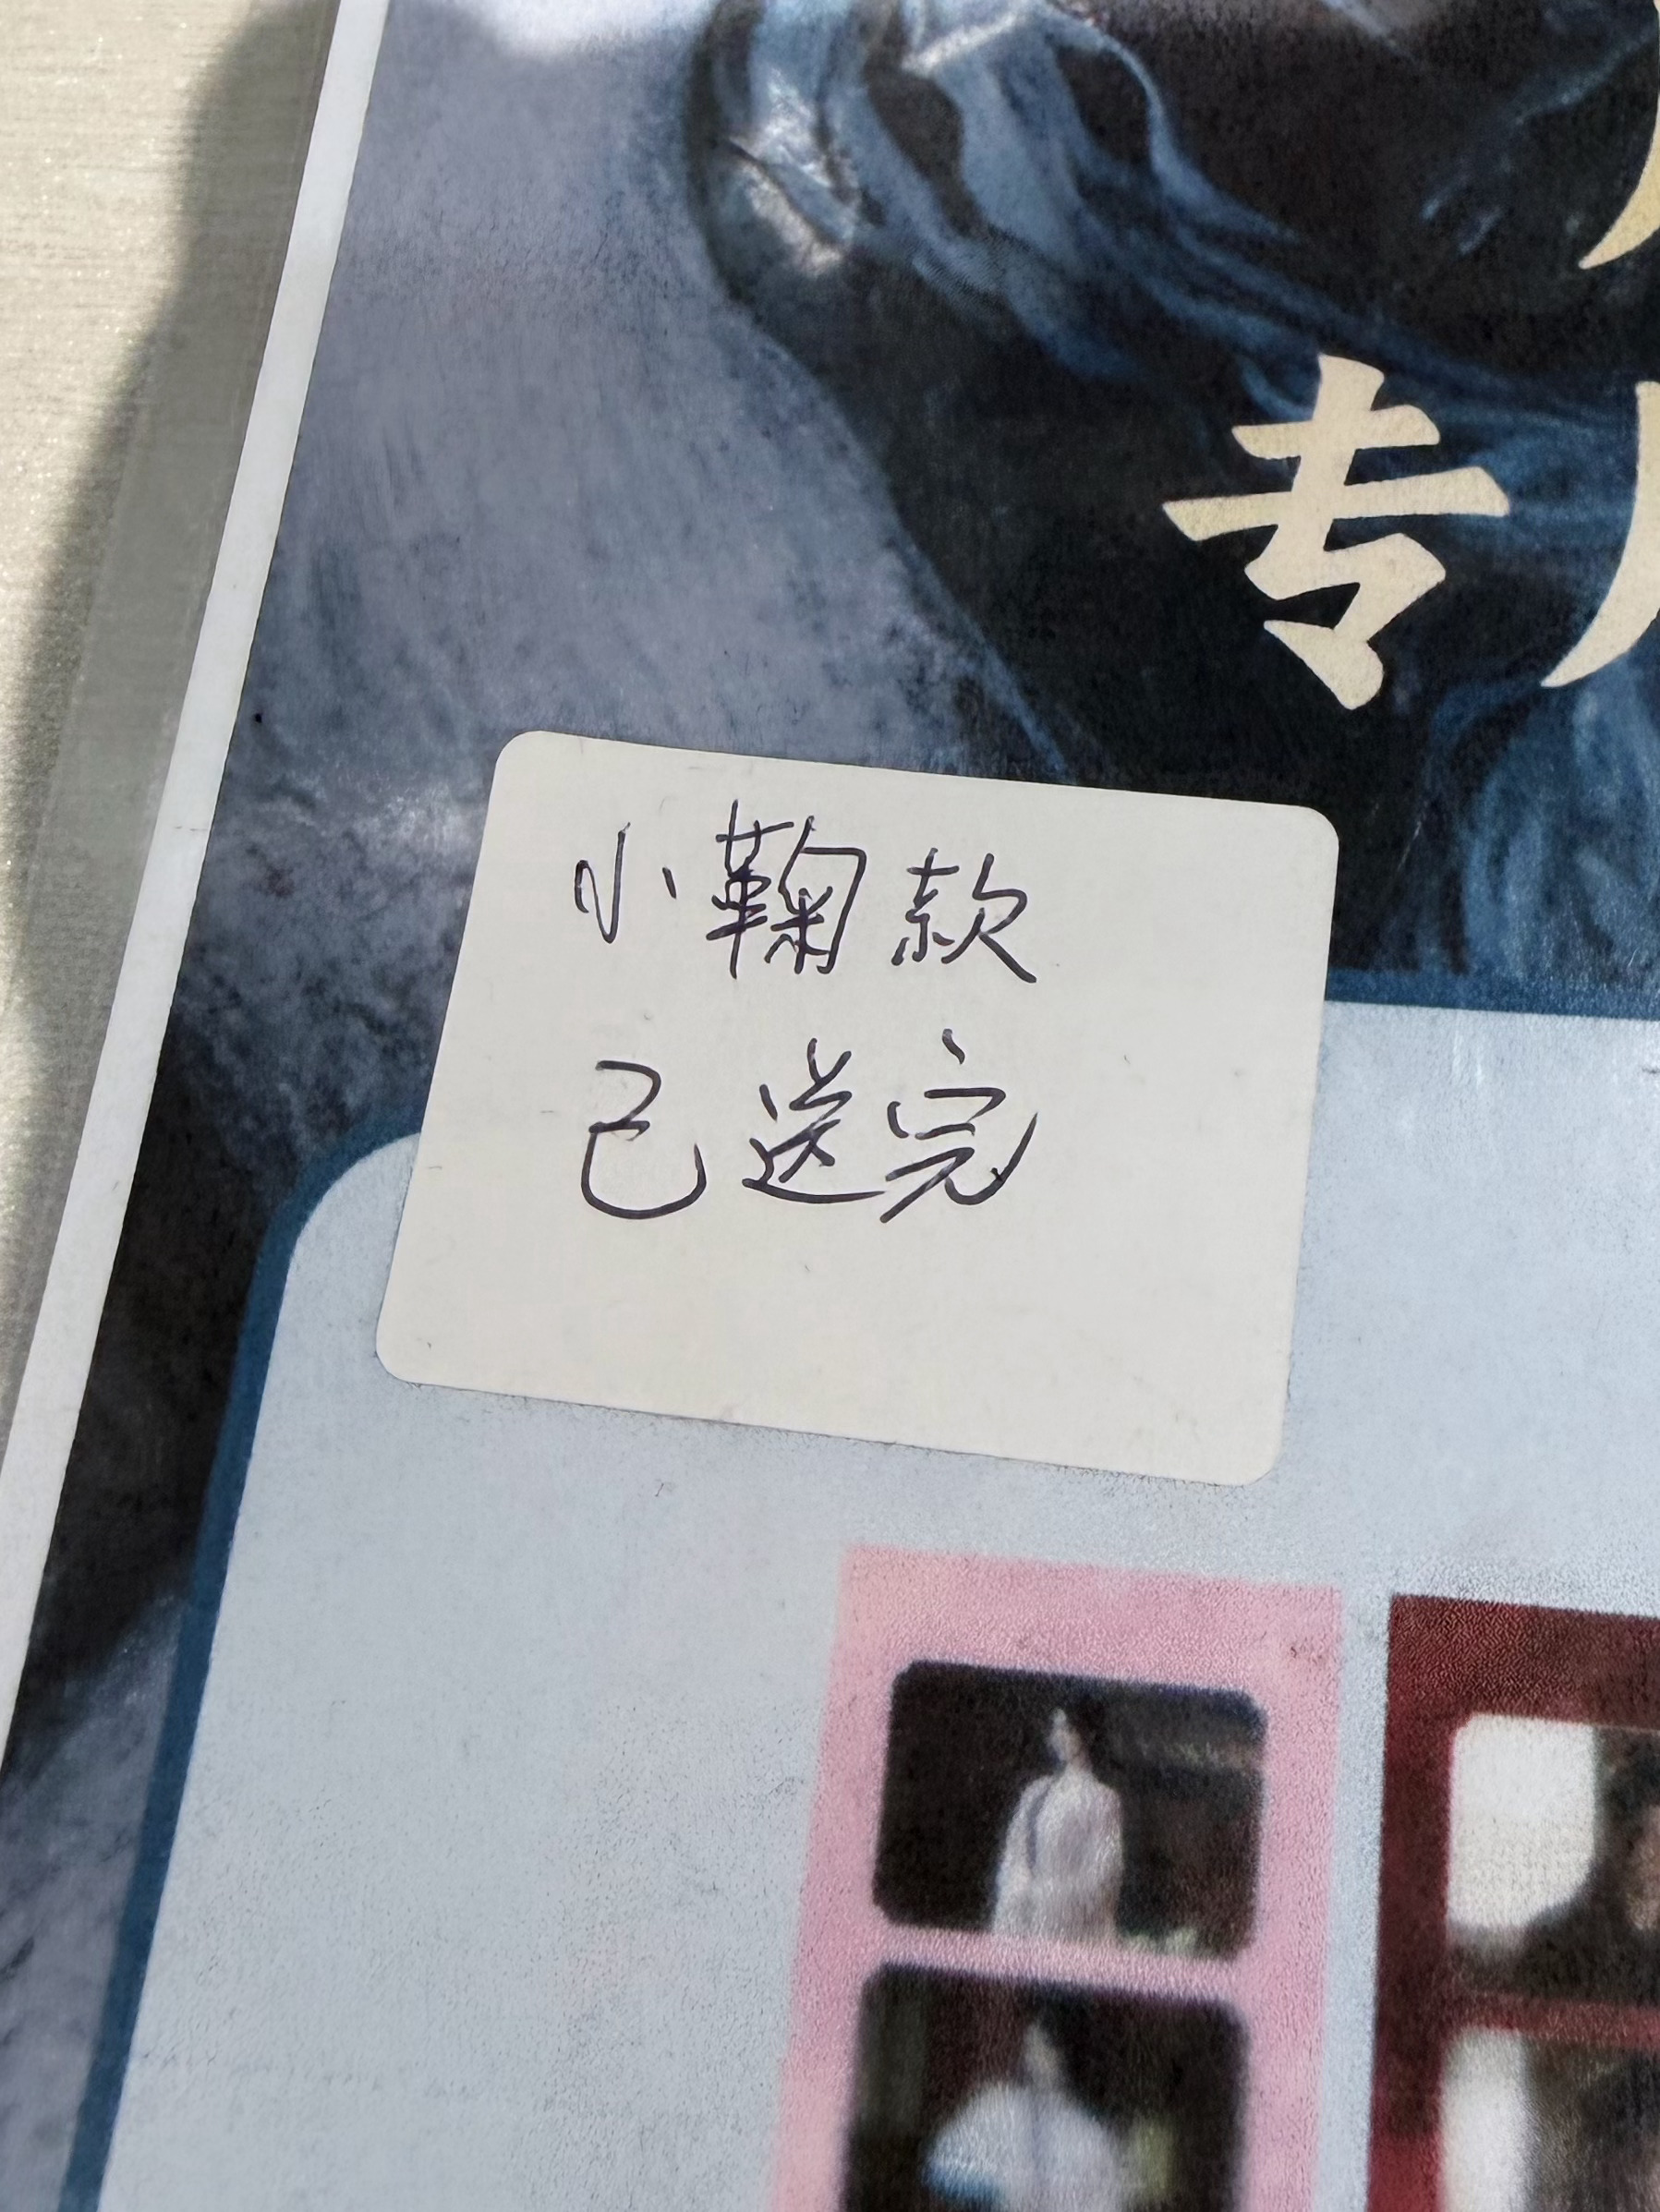 专
小鞠款
已送完